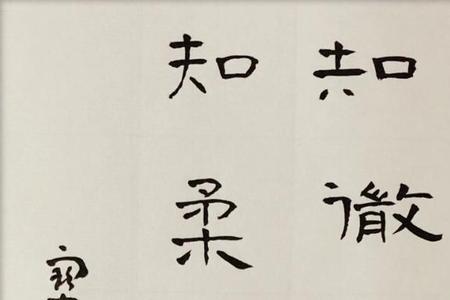 知微
知柔